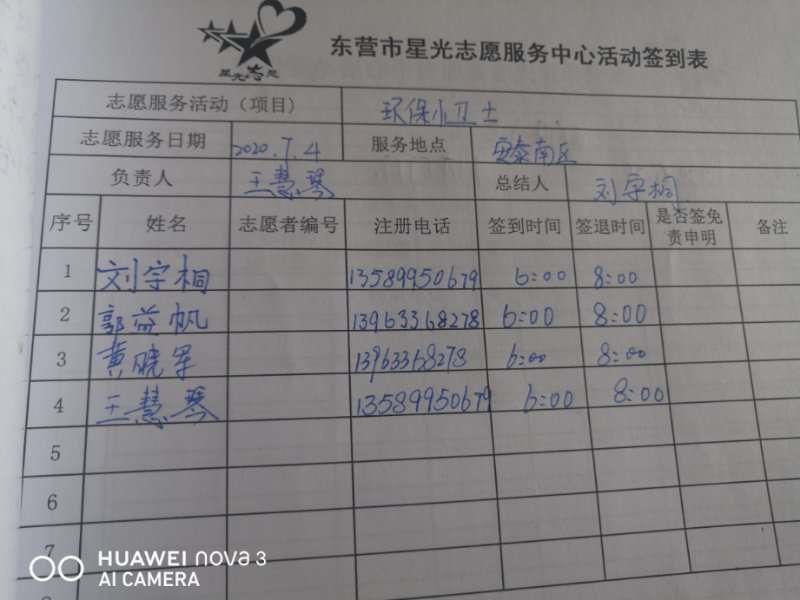 星光志愿
东营市星光志愿服务中心活动签到表
志愿服务活动（项目） 环保小卫士
志愿服务日期 2020.7.4 服务地点 安泰南区
负责人 王慧琴 总结人 刘宇桐
序号 姓名 志愿者编号 注册电话 签到时间 签退时间 是否签免责申明 备注
1 刘宇桐 13589950679 6:00 8:00
2 郭益帆 13963368278 6:00 8:00
3 黄晓军 13963368278 6:00 8:00
4 王慧琴 13589950679 6:00 8:00
5
6
7
HUAWEI nova 3
AI CAMERA